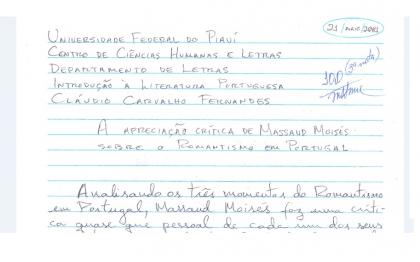 21/maio/2012
UNIVERSIDADE FEDERAL DO PIAUÍ
CENTRO DE CIÊNCIAS HUMANAS E LETRAS
DEPARTAMENTO DE LETRAS
INTRODUÇÃO À LITERATURA PORTUGUESA
CLÁUDIO CARVALHO FERNANDES
10,0 (3ª nota)
A APRECIAÇÃO CRÍTICA DE MASSAUD MOISÉS
SOBRE O ROMANTISMO EM PORTUGAL
Analisando os três momentos do Romantismo
em Portugal, Massaud Moisés faz uma críti-
ca quase que pessoal de cada um dos seus